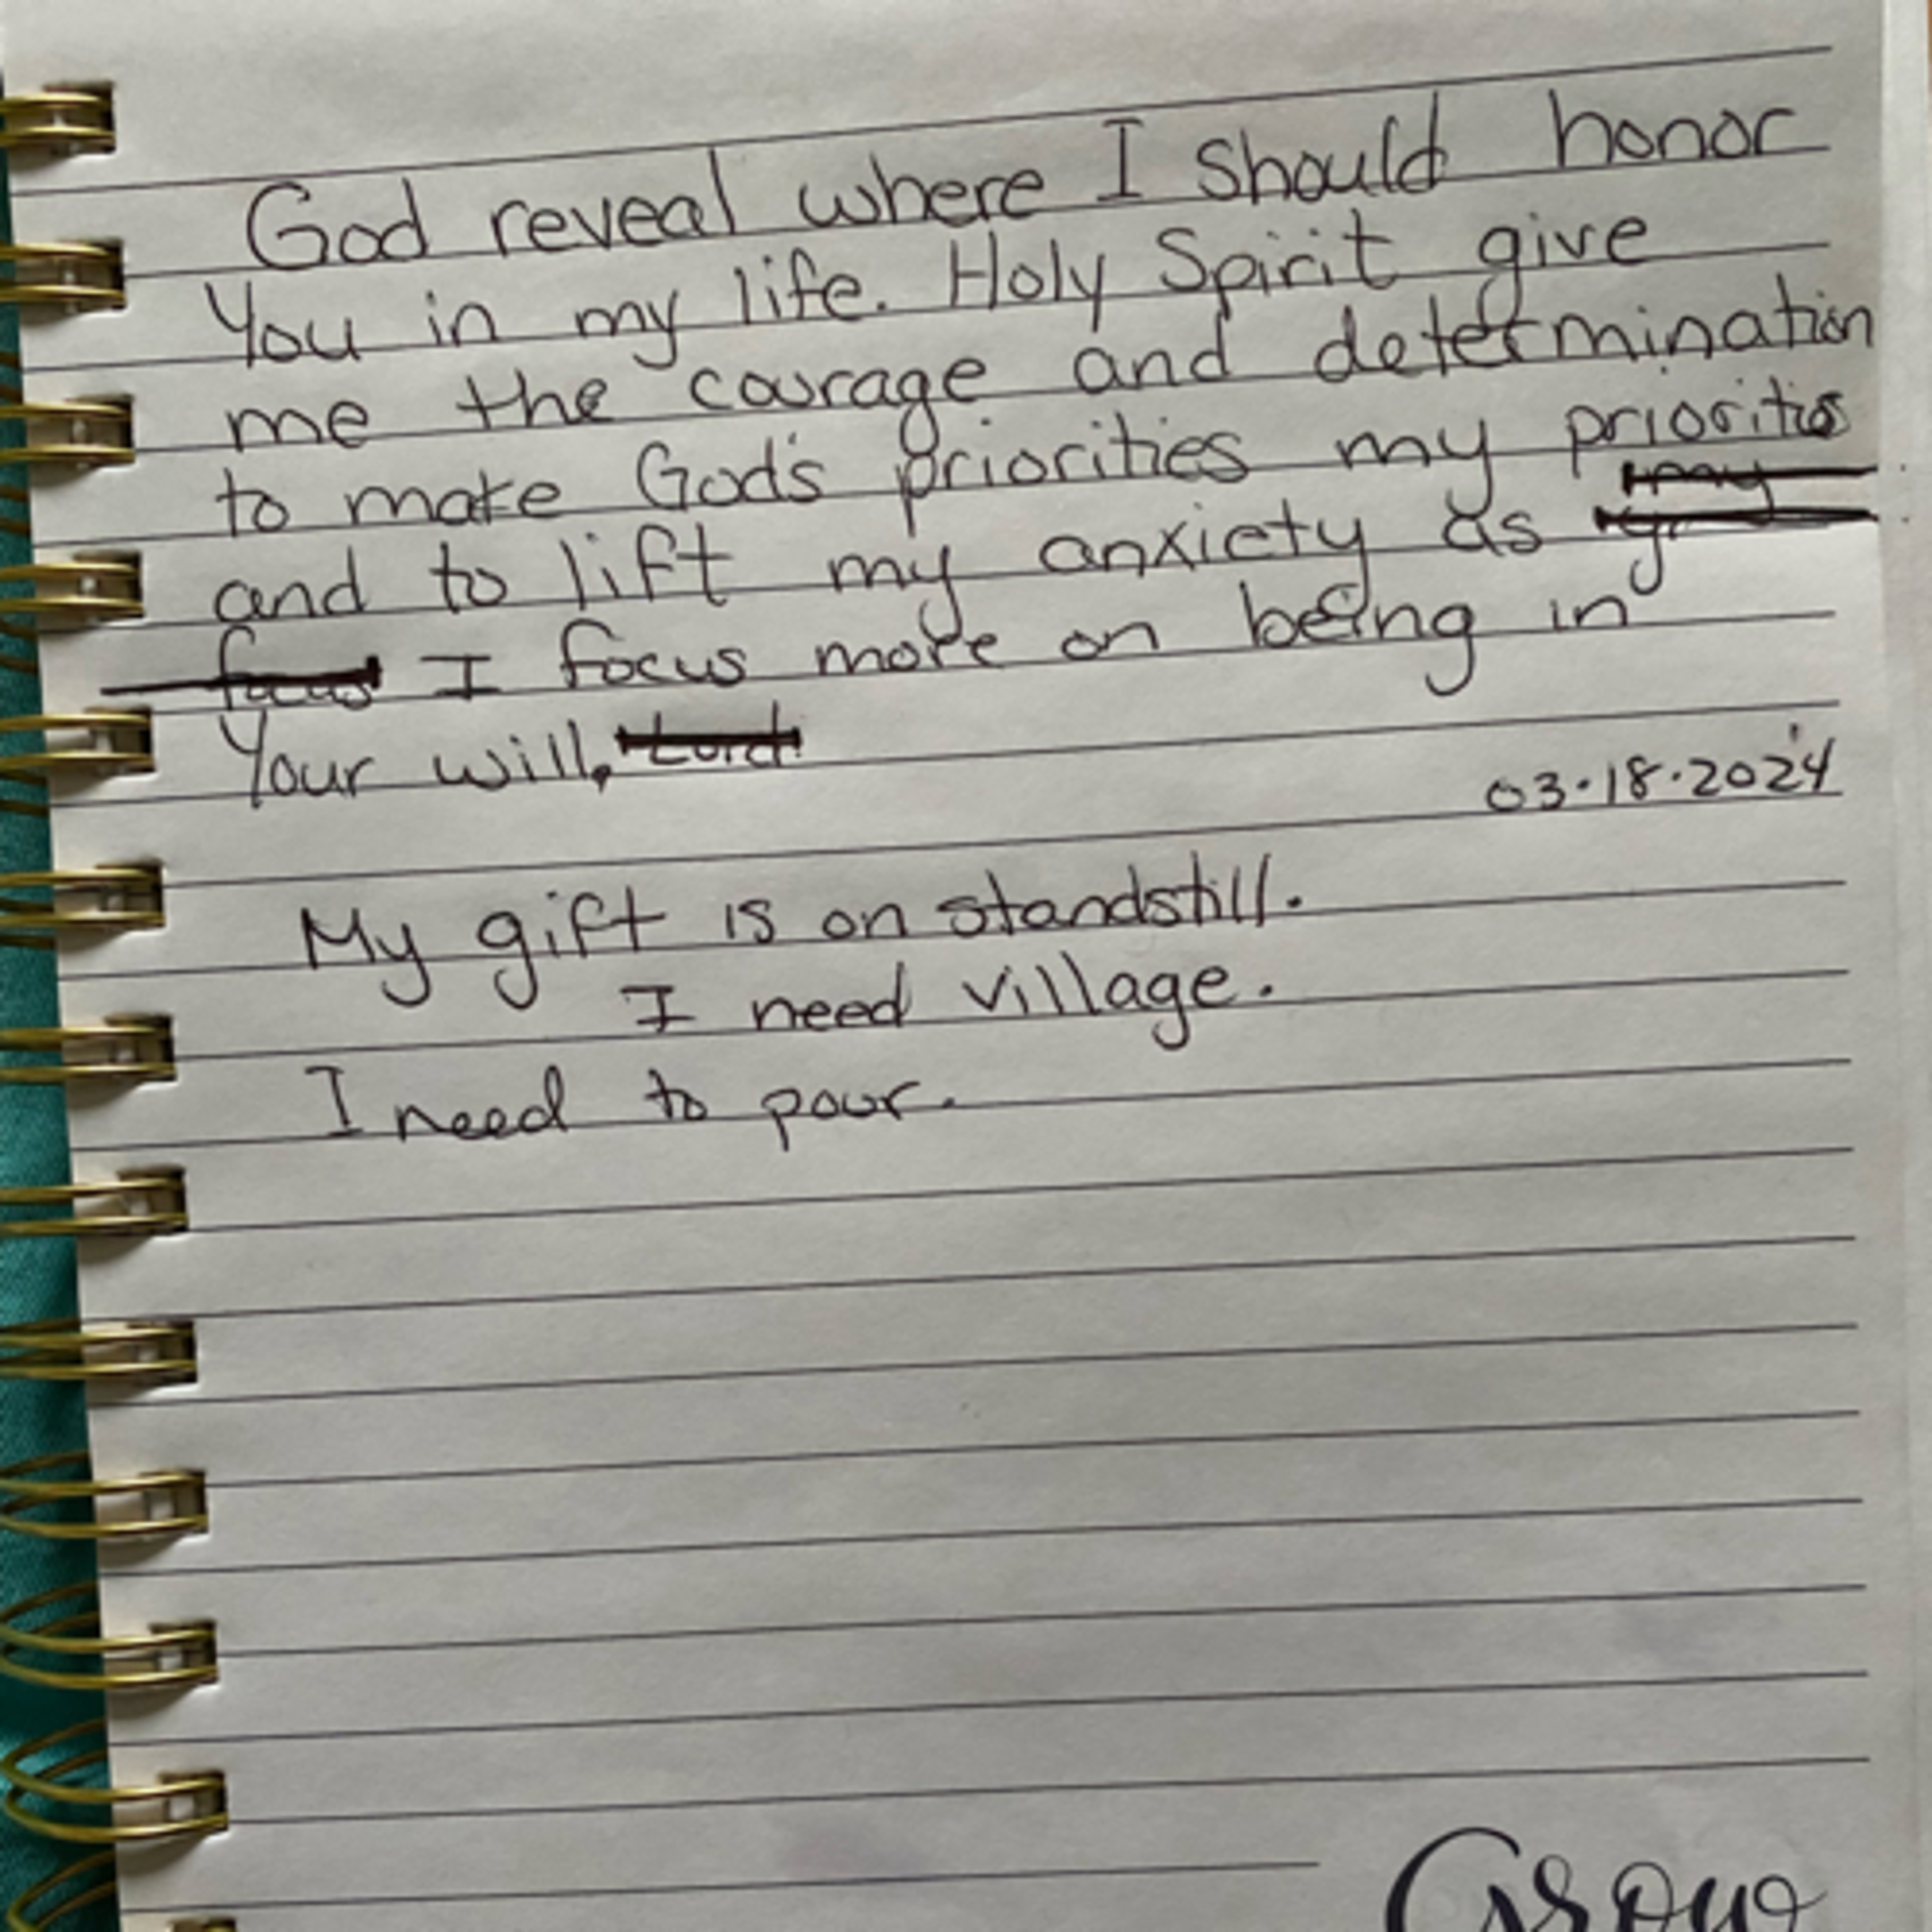 God reveal where I should honor
You in my life. Holy Spirit give
me the courage and determination
to make God's priorities my priorities
and to lift my anxiety as
focus I focus more on being in
Your will, Lord.
03.18.2024
My gift is on standstill.
I need village.
I need to pour.
Grow